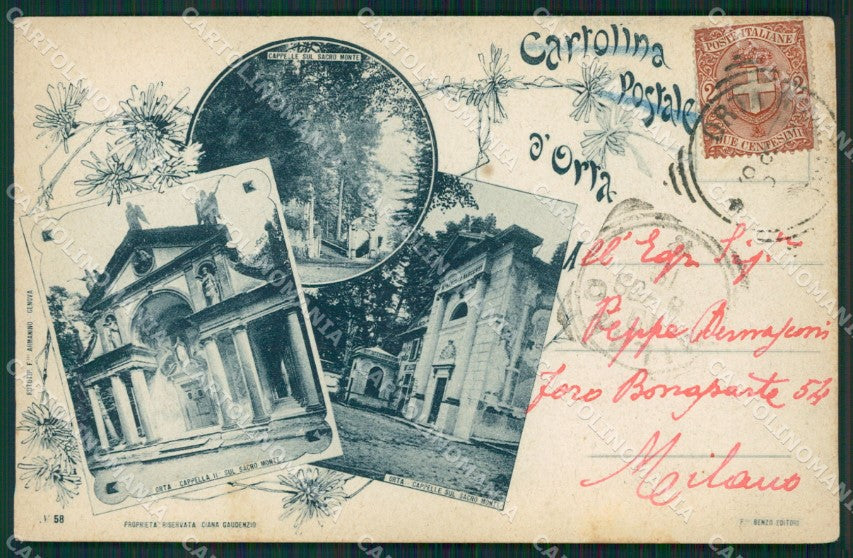 CAPPELLE SUL SACRO MONTE
Cartolina
Postale
d'Orta
POSTE ITALIANE
2 2
DUE CENTESIMI
All' Egr. Sig.r
Peppe Bernasconi
Foro Bonaparte 54
Milano
ORTA CAPPELLA II. SUL SACRO MONTE
ORTA CAPPELLE SUL SACRO MONTE
FOTOTIP. F.lli ARMANINO - GENOVA
N 58
PROPRIETÀ RISERVATA DIANA GAUDENZIO
F.lli BENZO EDITORI
CARTOLINOMANIA